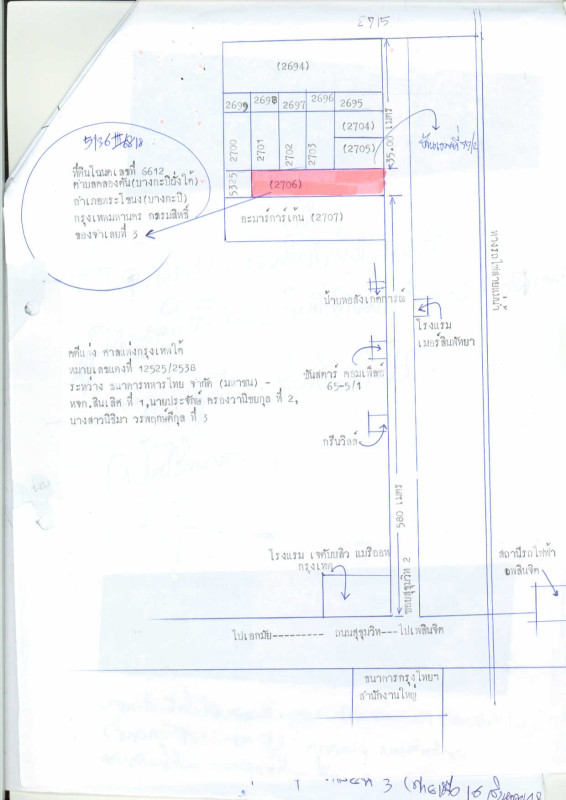 (2694)
2699 2698 2697 2696 2695
(2704)
2700 2701 2702 2703
(2705)
35.00 เมตร
5325 (2706)
อะมาร์การ์เด้น (2707)
ที่ดินโฉนดเลขที่ 6612
ตำบลคลองตัน(บางกะปิฝั่งใต้)
อำเภอพระโขนง(บางกะปิ)
กรุงเทพมหานคร กรรมสิทธิ์
ของจำเลยที่ 3
ทางรถไฟสายแม่น้ำ
โรงแรม
คดีแพ่ง ศาลแพ่งกรุงเทพใต้
หมายเลขแดงที่ 12525/2538
ระหว่าง ธนาคารทหารไทย จำกัด (มหาชน) -
หจก.สินเลิศ ที่ 1,นายประจักษ์ ครองวานิชยกุล ที่ 2,
นางสาวนิธิมา วรพฤกษ์กุล ที่ 3
ซันสตาร์ คอมเพล็กซ์
65-5/1
กรีนวิลล์
580 เมตร
ซอยสุขุมวิท 2
โรงแรม เจดับบลิว แมริออท
กรุงเทพ
สถานีรถไฟฟ้า
เพลินจิต
ไปเอกมัย--------- ถนนสุขุมวิท---ไปเพลินจิต
ธนาคารกรุงไทยฯ
สำนักงานใหญ่